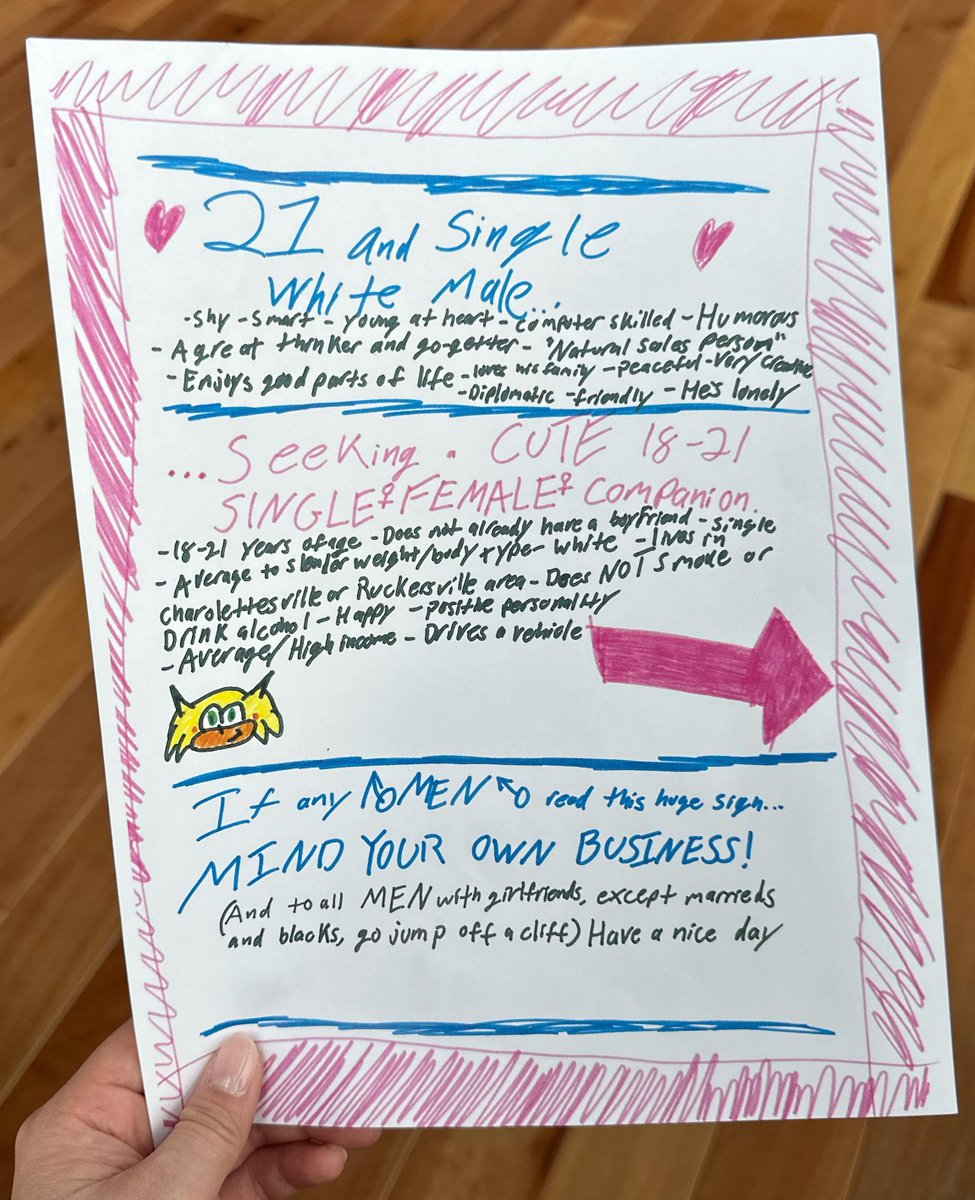 21 and Single
White Male...
-Shy -Smart - Young at heart - Computer skilled - Humorous
- A great thinker and go-getter - "Natural sales person"
- Enjoys good parts of life - loves his family - peaceful - Very Creative
- Diplomatic - friendly - He's lonely
...Seeking a CUTE 18-21
SINGLE♀FEMALE♀ Companion.
-18-21 years of age - Does not already have a boyfriend - single
- Average to slender weight/body type - white - lives in
charolettesville or Ruckersville area - Does NOT Smoke or
Drink alcohol - Happy - positive personality
- Average/High income - Drives a vehicle
If any ♂MEN♂ read this huge sign...
MIND YOUR OWN BUSINESS!
(And to all MEN with girlfriends, except marrieds
and blacks, go jump off a cliff) Have a nice day